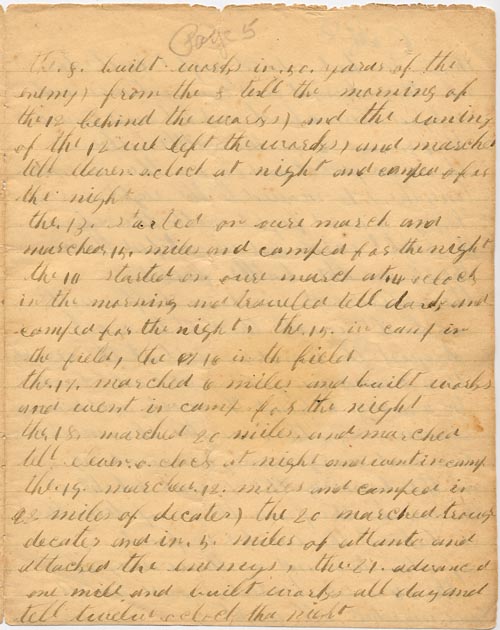 Page 5
the 8. built works in 50. yards of the
enemy) from the 8 tell the morning of
the 12 behind the works) and the evning
of the 12 we left the works) and marched
tell eleven oclock at night and camped for
the night
the 13. started on oure march and
marched 15. miles and camped for the night
the started on oure march at oclock
in the morning and traveled tell dark and
camped for the night, the 15. in camp in
the field, the 16 in th field
the 17. marched 6 miles and built works
and went in camp for the night
the 18. marched 20 miles and marched
tell eleven o clock at night and went in camp
the 19. marched 12. miles and camped in
miles of decater) the 20 marched throug
decater and in 5. miles of atlanta and
attached the enemys, the 21. advanced
one mile and built works all day and
tell twelve oclock tha night